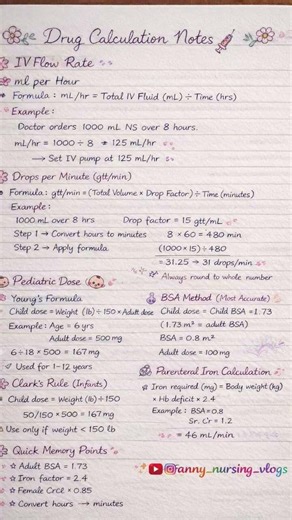 Drug Calculation Notes
IV Flow Rate
ml per Hour
Formula: mL/hr = Total IV Fluid (mL) ÷ Time (hrs)
Example:
Doctor orders 1000 mL NS over 8 hours.
mL/hr = 1000 ÷ 8 → 125 mL/hr
→ Set IV pump at 125 mL/hr
Drops per Minute (gtt/min)
Formula: gtt/min = (Total Volume × Drop Factor) ÷ Time (minutes)
Example:
1000 mL over 8 hrs Drop factor = 15 gtt/mL
Step 1 → Convert hours to minutes 8 × 60 = 480 min
Step 2 → Apply formula. (1000×15) ÷ 480
= 31.25 → 31 drops/min
☆ Always round to whole number
Pediatric Dose
Young's Formula
Child dose = Weight (lb) ÷ 150 × Adult dose
Example: Age = 6 yrs
Adult dose = 500 mg
6 ÷ 18 × 500 = 167 mg
Used for 1-12 years
Clark's Rule (Infants)
Child dose = Weight (lb) ÷ 150
50/150 × 500 = 167 mg
Use only if weight < 150 lb
Quick Memory Points
☆ Adult BSA = 1.73
☆ Iron factor = 2.4
☆ Female CrCl × 0.85
☆ Convert hours → minutes
BSA Method (Most Accurate)
Child dose = Child BSA ÷ 1.73
(1.73 m² = adult BSA)
BSA = 0.8 m²
Adult dose = 100 mg
Parenteral Iron Calculation
☆ Iron required (mg) = Body weight (kg)
× Hb deficit × 2.4
Example: BSA = 0.8
Sr. Cr = 1.2
= 46 mL/min
@anny_nursing_vlogs